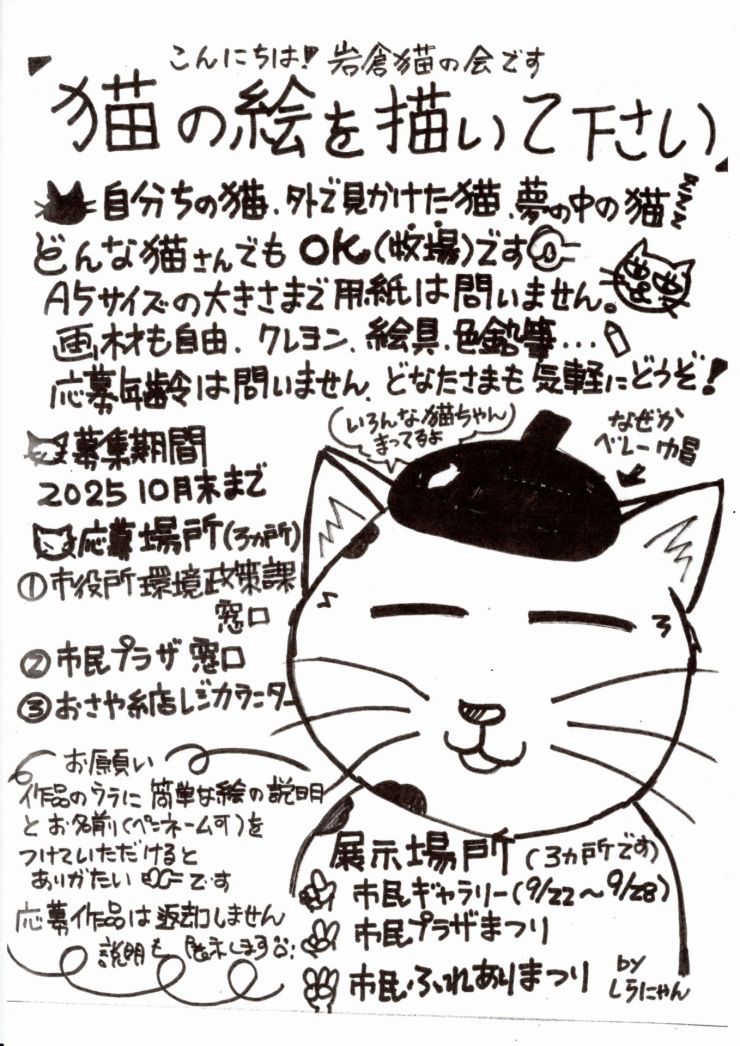 こんにちは！岩倉猫の会です
猫の絵を描いて下さい
自分ちの猫、外で見かけた猫、夢の中の猫
どんな猫さんでもOK(牧場)です
A5サイズの大きさまで用紙は問いません。
画材も自由、クレヨン、絵具、色鉛筆…
応募年齢は問いません、どなたさまも気軽にどうぞ！
いろんな猫ちゃん
まってるよ
なぜか
ベレー帽
募集期間
2025 10月末まで
応募場所(3ヵ所)
①市役所環境政策課
窓口
②市民プラザ窓口
③おさや糸店レジカウンター
お願い
作品のウラに簡単な絵の説明
とお名前(ペンネーム可)を
つけていただけると
ありがたいです
応募作品は返却しません
説明も展示します
展示場所(3ヵ所です)
市民ギャラリー(9/22〜9/28)
市民プラザまつり
市民ふれあいまつり
by
しらにゃん